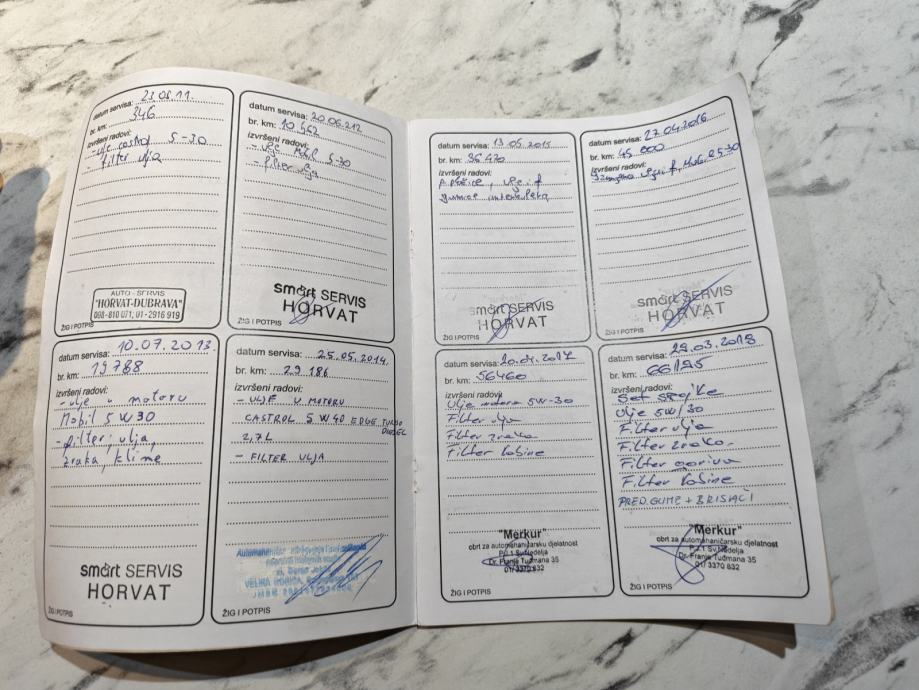 datum servisa: 23.08.11.
br. km: 346
izvršeni radovi:
- ulje castrol 5-30
- filter ulja
AUTO - SERVIS
"HORVAT-DUBRAVA"
098-810 071; 01-2916 919
ŽIG I POTPIS
datum servisa: 20.06.212
br. km: 10 462
izvršeni radovi:
5-30
- filter ulja
smart SERVIS
HORVAT
ŽIG I POTPIS
datum servisa: 10.07.2013.
br. km: 19788
izvršeni radovi:
- ulje u motoru
Mobil 5W30
- filter: ulja,
zraka, klime
smart SERVIS
HORVAT
ŽIG I POTPIS
datum servisa: 25.05.2014.
br. km: 29 186
izvršeni radovi:
- ULJE U MOTORU
CASTROL 5W40 EDGE TURBO
DIESEL
2,7L
- FILTER ULJA
VELIKA GORICA,
ŽIG I POTPIS
datum servisa: 13.05.2015
br. km: 36470
izvršeni radovi:
gumice
smart SERVIS
HORVAT
ŽIG I POTPIS
datum servisa: 27.04.2016
br. km: 45 000
izvršeni radovi:
5-30
smart SERVIS
HORVAT
ŽIG I POTPIS
datum servisa: 20.04.2017
br. km: 56460
izvršeni radovi:
Ulje motora 5W-30
Filter ulja
Filter zraka
Filter kabine
"Merkur"
obrt za automehaničarsku djelatnost
P.J.1 Sv.Nedelja
Dr. Franje Tuđmana 35
01/ 3370 832
ŽIG I POTPIS
datum servisa: 29.03.2018
br. km: 66195
izvršeni radovi:
Ulje 5W/30
Filter ulja
Filter zraka
Filter goriva
Filter kabine
PRED. GUME + BRISAČI
"Merkur"
obrt za automehaničarsku djelatnost
P.J.1 Sv.Nedelja
Dr. Franje Tuđmana 35
01/ 3370 832
ŽIG I POTPIS